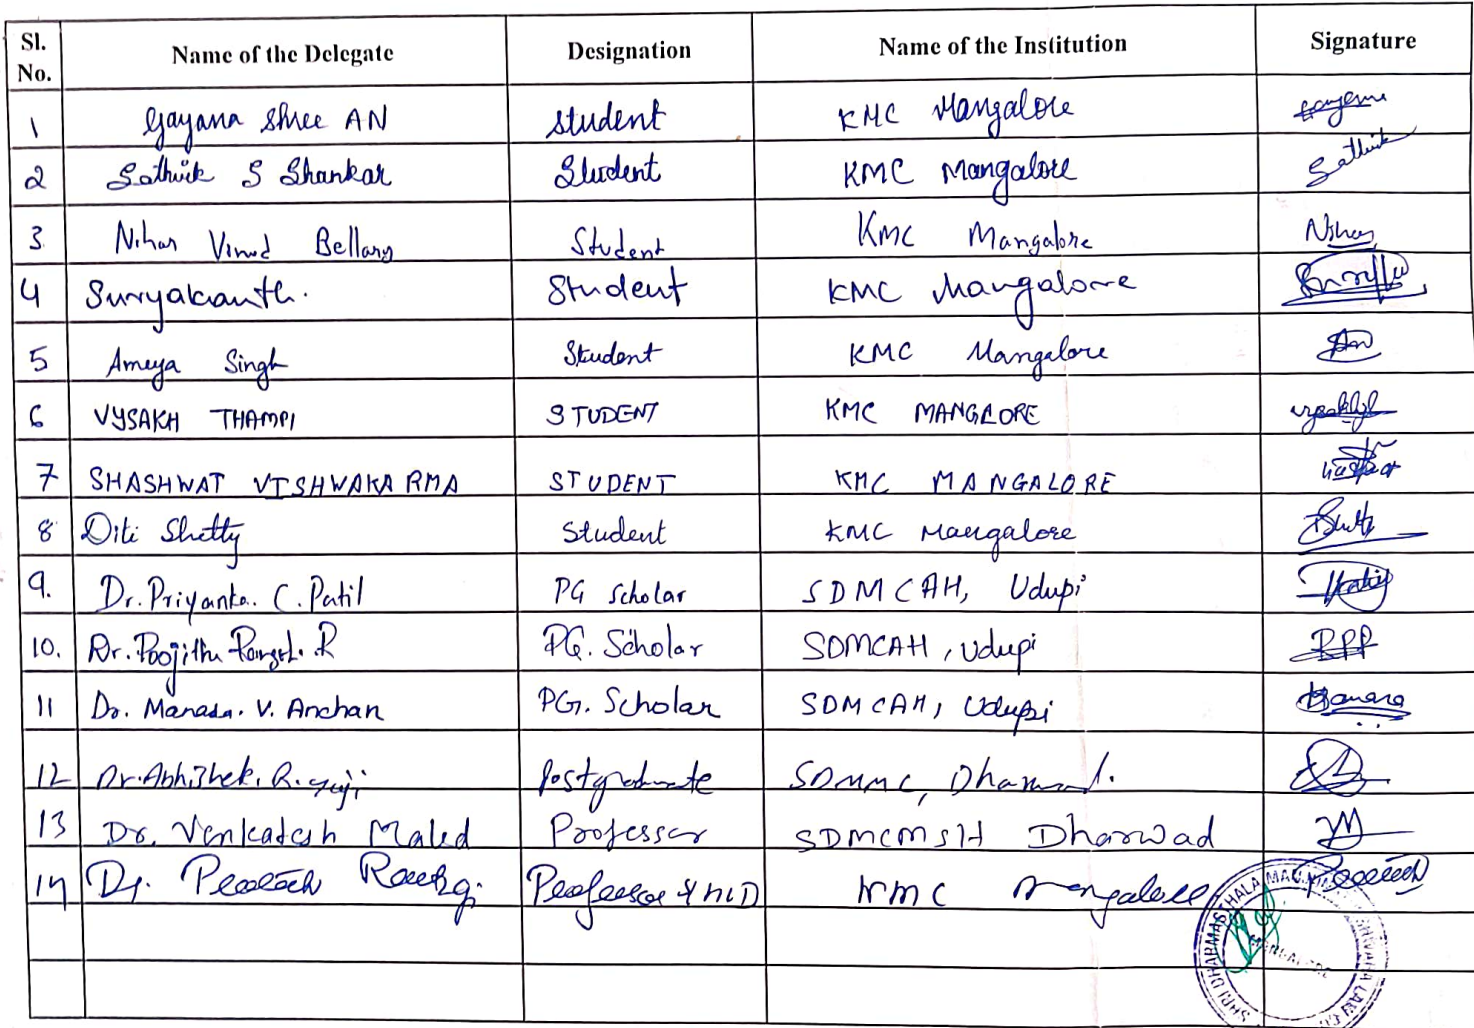 Sl. No. Name of the Delegate Designation Name of the Institution Signature
1 Gayana Shree AN Student KMC Mangalore
2 Sathvik S Shankar Student KMC Mangalore Sathvik
3 Nihar Vinod Bellary Student KMC Mangalore Nihar
4 Suryakanth. Student KMC Mangalore
5 Ameya Singh Student KMC Mangalore
6 VYSAKH THAMPI STUDENT KMC MANGLORE
7 SHASHWAT VISHWAKARMA STUDENT KMC MANGALORE
8 Diti Shetty Student KMC Mangalore
9. Dr. Priyanka. C. Patil PG Scholar SDMCAH, Udupi
10. Dr. Poojitha R PG. Scholar SDMCAH, Udupi
11 Dr. Manasa. V. Anchan PG. Scholar SDMCAH, Udupi
12 Dr. Abhishek. R. Postgraduate SDMMC, Dharwad.
13 Dr. Venkatesh Maled Professor SDMCMSH Dharwad
14 Dr. Professor & HOD KMC Mangalore
SHRI DHARMASTHALA
MANGALORE